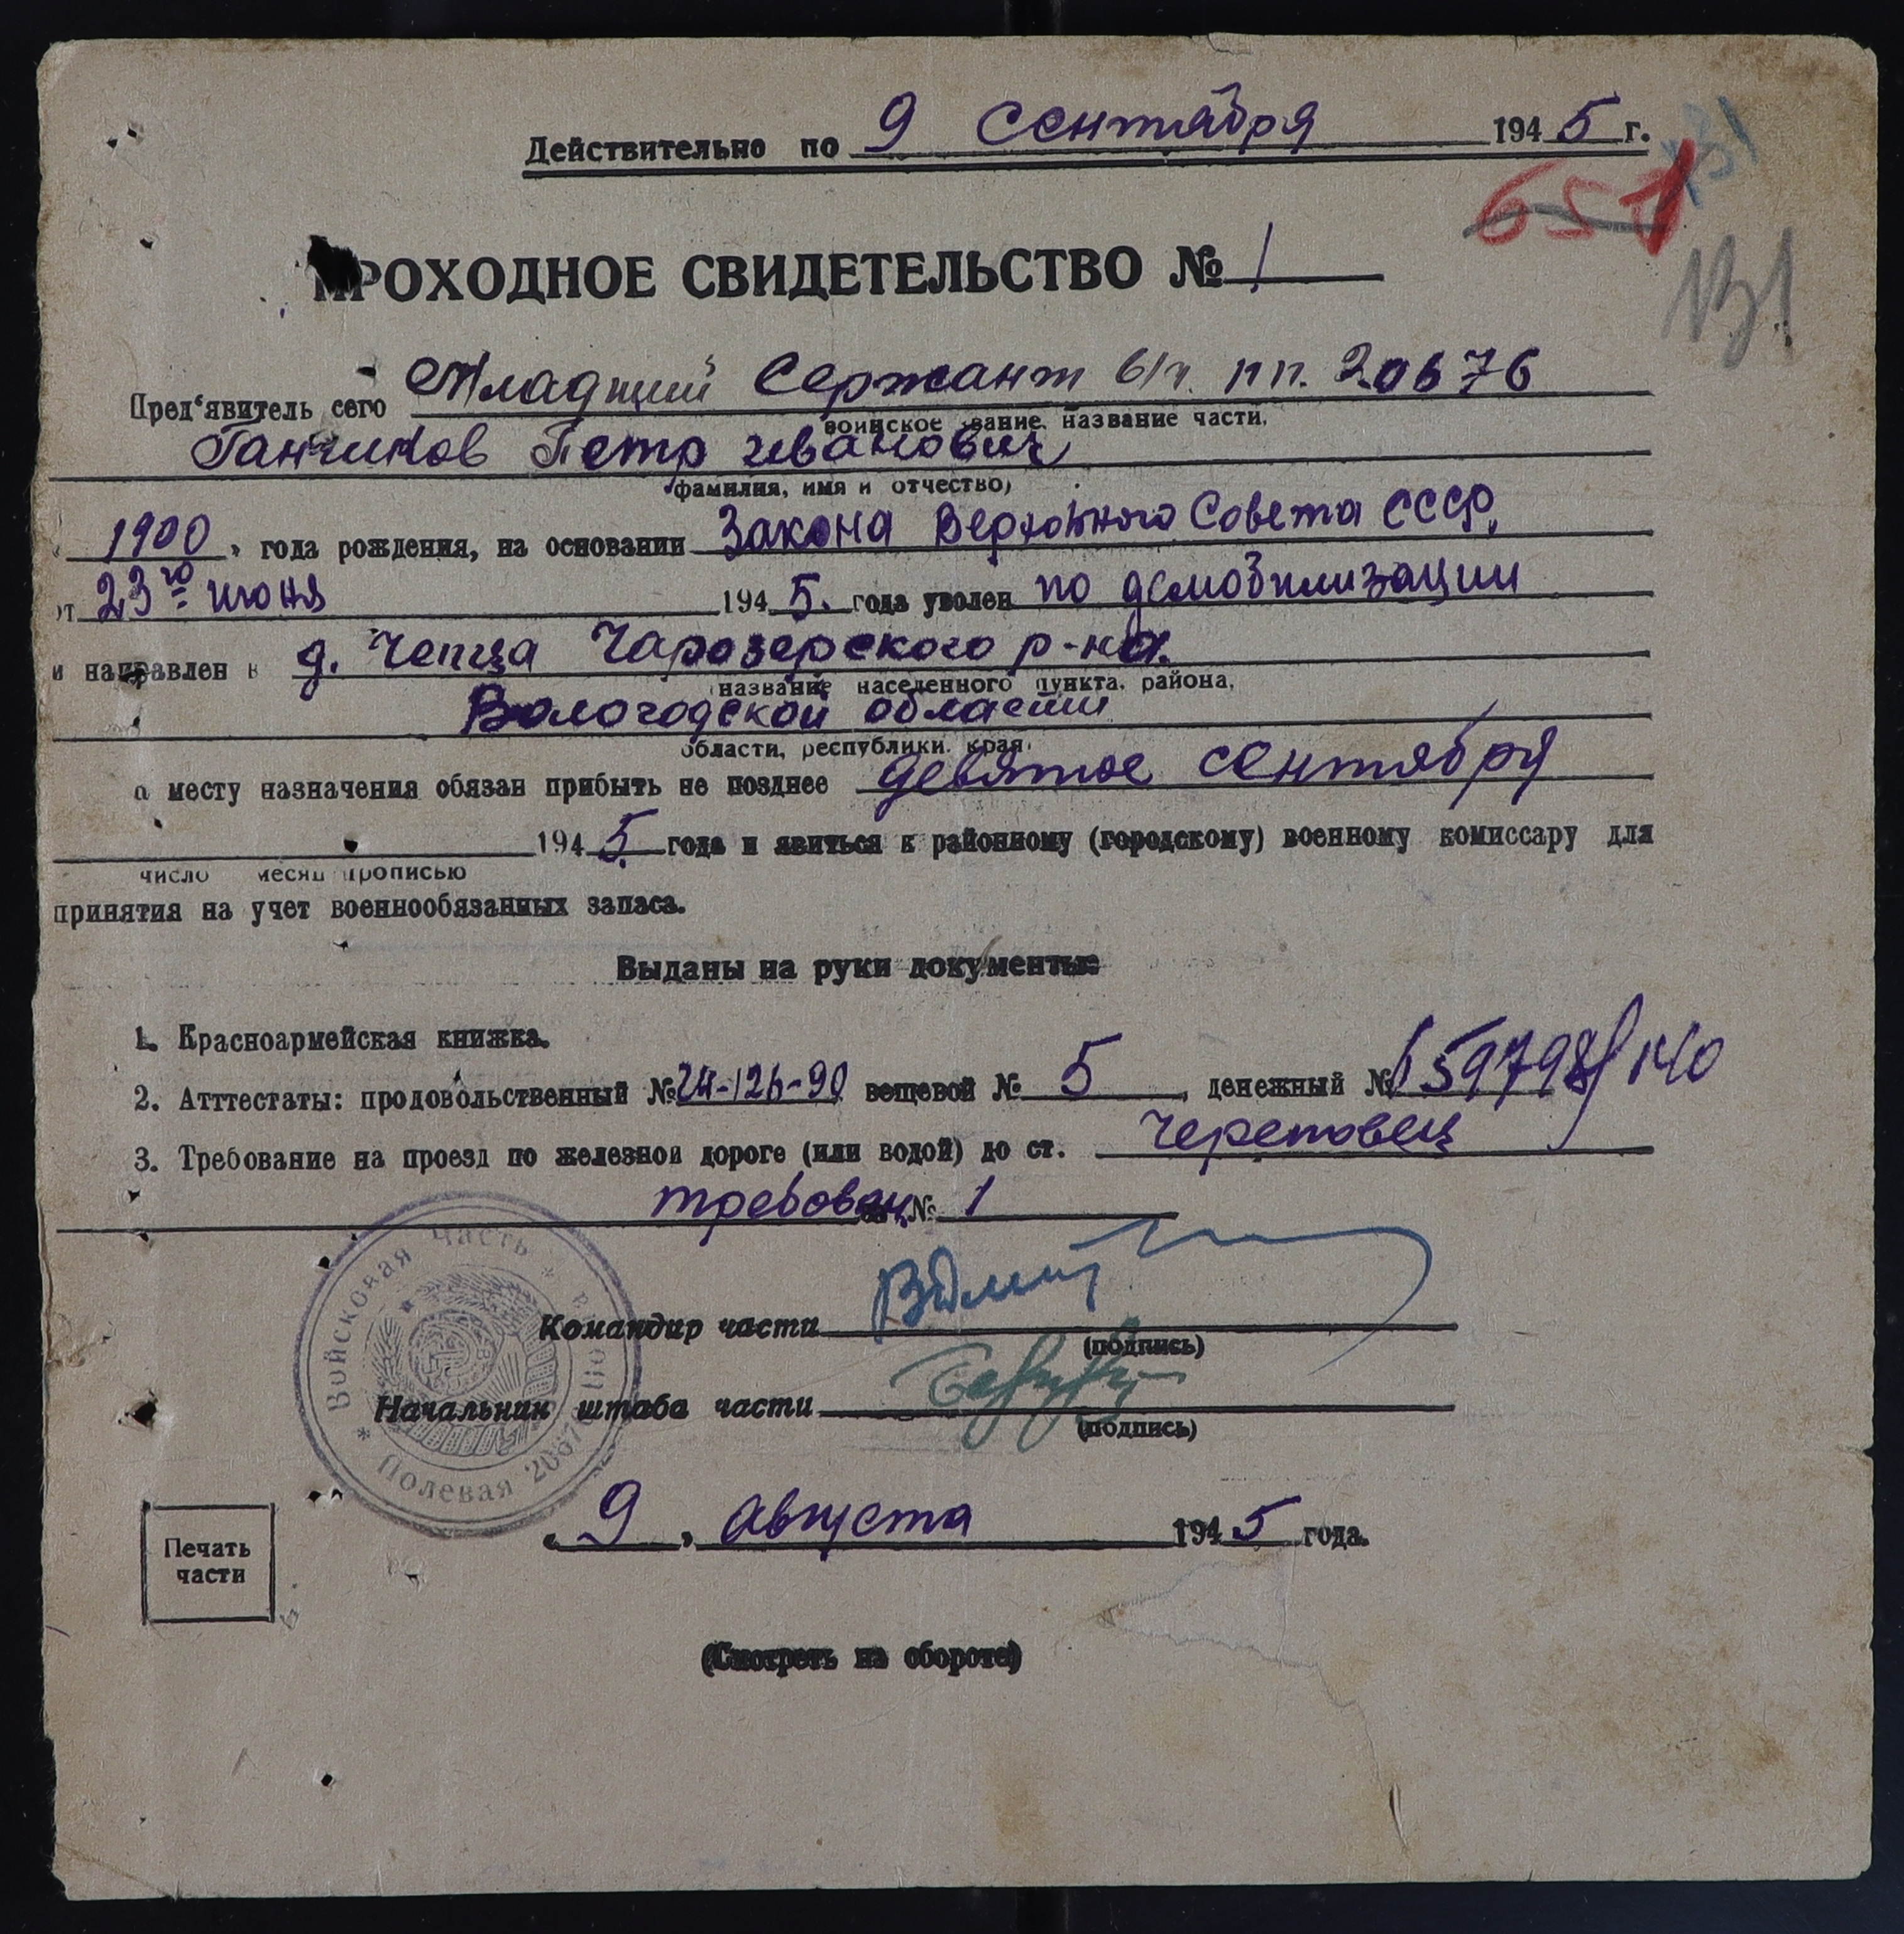 Действительно по 9 сентября 1945 г.
651
131
ПРОХОДНОЕ СВИДЕТЕЛЬСТВО № 1
Пред‘явитель сего Младший Сержант в/ч. пп. 20676
воинское звание, название части,
Ганчиков Петр Иванович
(фамилия, имя и отчество)
„1900„ года рождения, на основании Закона Верховного Совета СССР,
от 23го июня 1945. года уволен по демобилизации
и направлен в д. Чепца Чарозерского р-на.
название населенного пункта, района,
Вологодской области
области, республики, края,
к месту назначения обязан прибыть не позднее девятое сентября
1945. года и явиться к районному (городскому) военному комиссару для
число месяц прописью
принятия на учет военнообязанных запаса.
Выданы на руки документы:
1. Красноармейская книжка.
2. Атттестаты: продовольственный № вещевой № 5, денежный №
3. Требование на проезд по железной дороге (или водой) до ст. Череповец
требован. № 1
Войсковая часть * Полевая почта 20676 *
Командир части
(подпись)
Начальник штаба части
(подпись)
„9„ августа 1945 года.
Печать
части
(Смотреть на обороте)